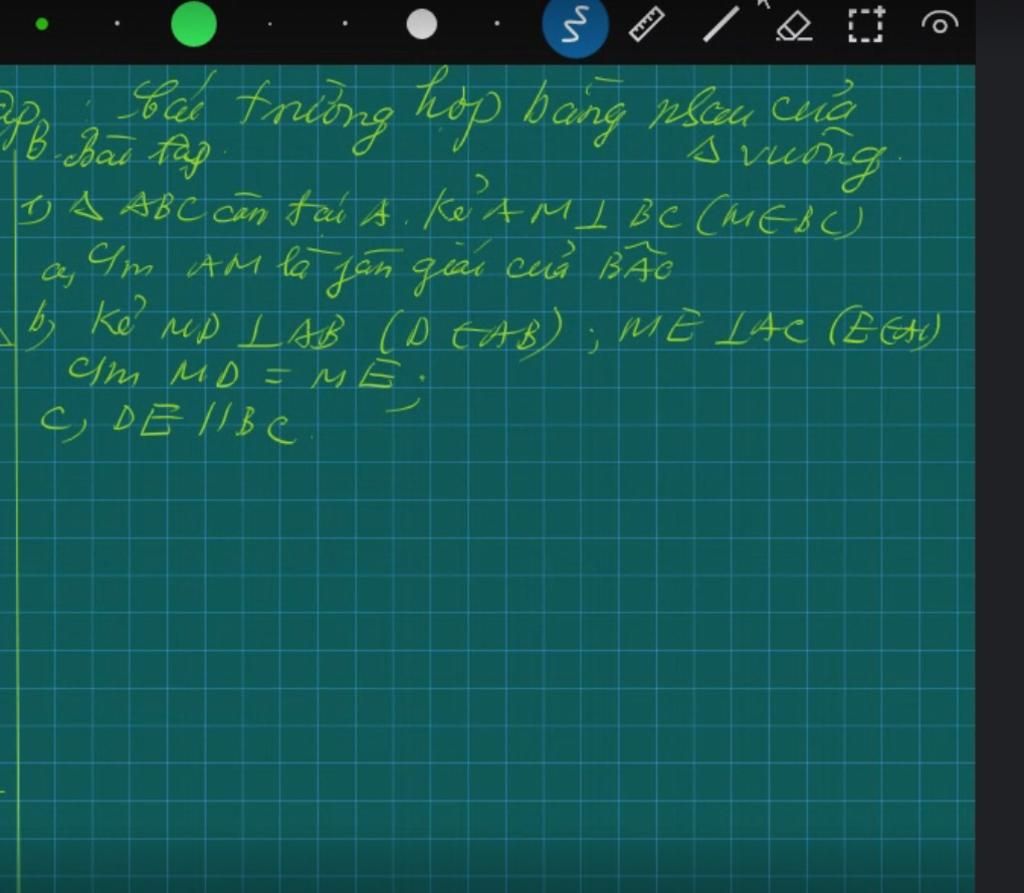 Các trường hợp bằng nhau của
Δ vuông.
B. Bài tập.
1) Δ ABC cân tại A. Kẻ AM ⊥ BC (M∈BC)
a, C/m AM là fân giác của BÂC
b, Kẻ MD ⊥ AB (D ∈ AB) ; ME ⊥ AC (E∈AC)
C/m MD = ME ;
c, DE // BC.